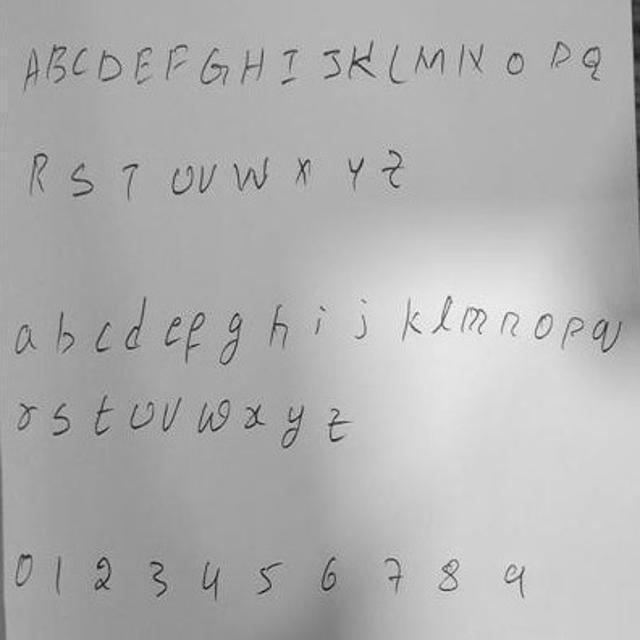 ABCDEFGHIJKLMNOPQ
RSTUVWXYZ
abcdefghijklmnopq
rstuvwxyz
0123456789